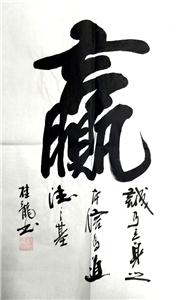 贏
誠乃立身之
本信为進
德之基
桂龍书